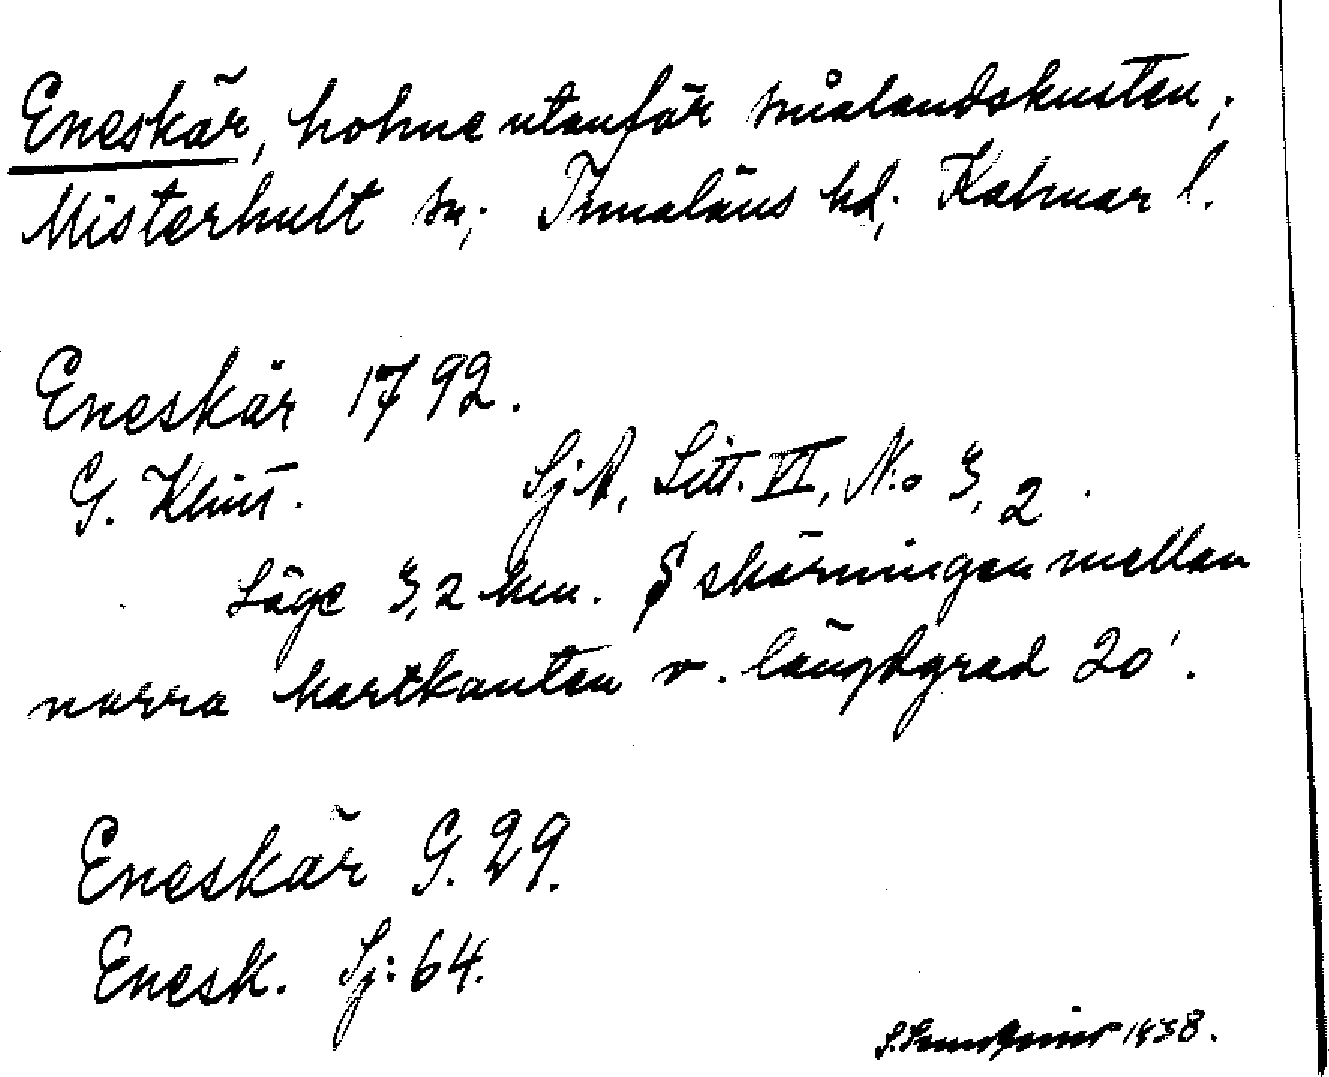 Eneskär, holme utanför smålandskusten;
Misterhult sn; Tunaläns hd; Kalmar l.
Eneskär 1792.
G. Klint. SjA, Litt. VI, N:o 3, 2.
Läge 3,2 km. S skärningen mellan
norra kartkanten o. längdgrad 20'.
Eneskär G. 29.
Enesk. Sj: 64.
1938.